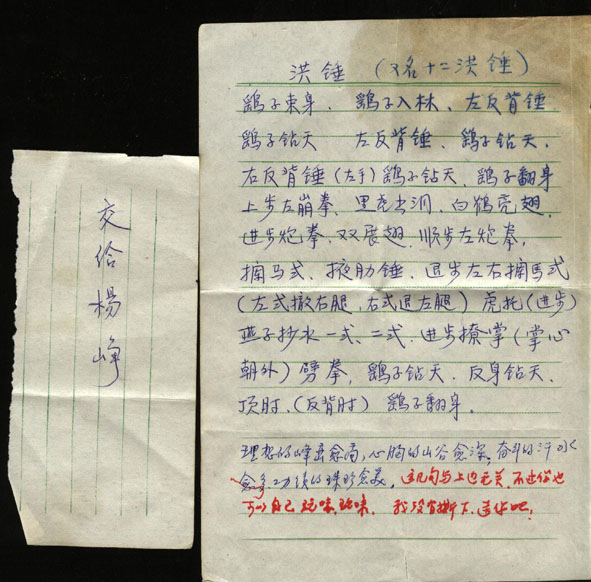 交给杨峥
洪锤（又名十二洪锤）
鹞子束身、鹞子入林、左反背锤
鹞子钻天 左反背锤、鹞子钻天、
右反背锤（左手）鹞子钻天、鹞子翻身
上步左崩拳、黑虎出洞、白鹤亮翅、
进步炮拳、双展翅、顺步左炮拳、
搁马式、掖肋锤、退步左右搁马式
（左式撤右腿、右式退左腿）虎托（进步）
燕子抄水一式、二式、进步撩掌（掌心
朝外）劈拳、鹞子钻天、反身钻天、
顶肘、（反背肘）鹞子翻身。
理想的峰峦愈高，心胸的山谷愈深，奋斗的汗水
愈多功绩的 愈美。这几句与上边无关，不过你也
可以自己玩味玩味。我没有撕下，送你吧，